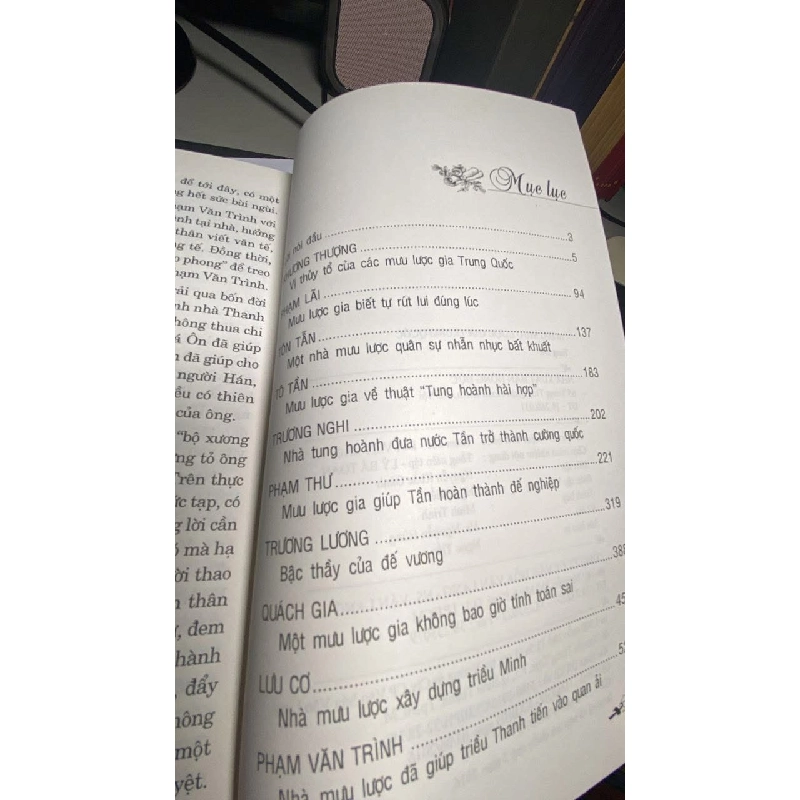 để tới đây, có một
g hết sức bùi ngùi.
ạm Văn Trình với
ình tại nhà, hướng
thân viết văn tế.
ng tế. Đồng thời,
phong" để treo
hạm Văn Trình.
rải qua bốn đời
nh nhà Thanh
hông thua chi
á Ôn đã giúp
n đã giúp cho
người Hán,
ều có thiên
của ông.
"bộ xương
ng tỏ ông
Trên thực
ức tạp, có
g lời cẩn
ó mà hạ
ời thao
n thân
, đem
hành
, đẩy
hông
một
yệt.
Mục lục
nói đầu 3
KHƯƠNG THƯỢNG 5
Vị thủy tổ của các mưu lược gia Trung Quốc
PHẠM LÃI 94
Mưu lược gia biết tự rút lui đúng lúc
TÔN TẪN 137
Một nhà mưu lược quân sự nhẫn nhục bất khuất
TÔ TẦN 183
Mưu lược gia về thuật "Tung hoành hài hợp"
TRƯƠNG NGHI 202
Nhà tung hoành đưa nước Tần trở thành cường quốc
PHẠM THƯ 221
Mưu lược gia giúp Tần hoàn thành đế nghiệp
TRƯƠNG LƯƠNG 319
Bậc thầy của đế vương
QUÁCH GIA 388
Một mưu lược gia không bao giờ tính toán sai
LƯU CƠ 45
Nhà mưu lược xây dựng triều Minh
PHẠM VĂN TRÌNH 52
Nhà mưu lược đã giúp triều Thanh tiến vào quan ải